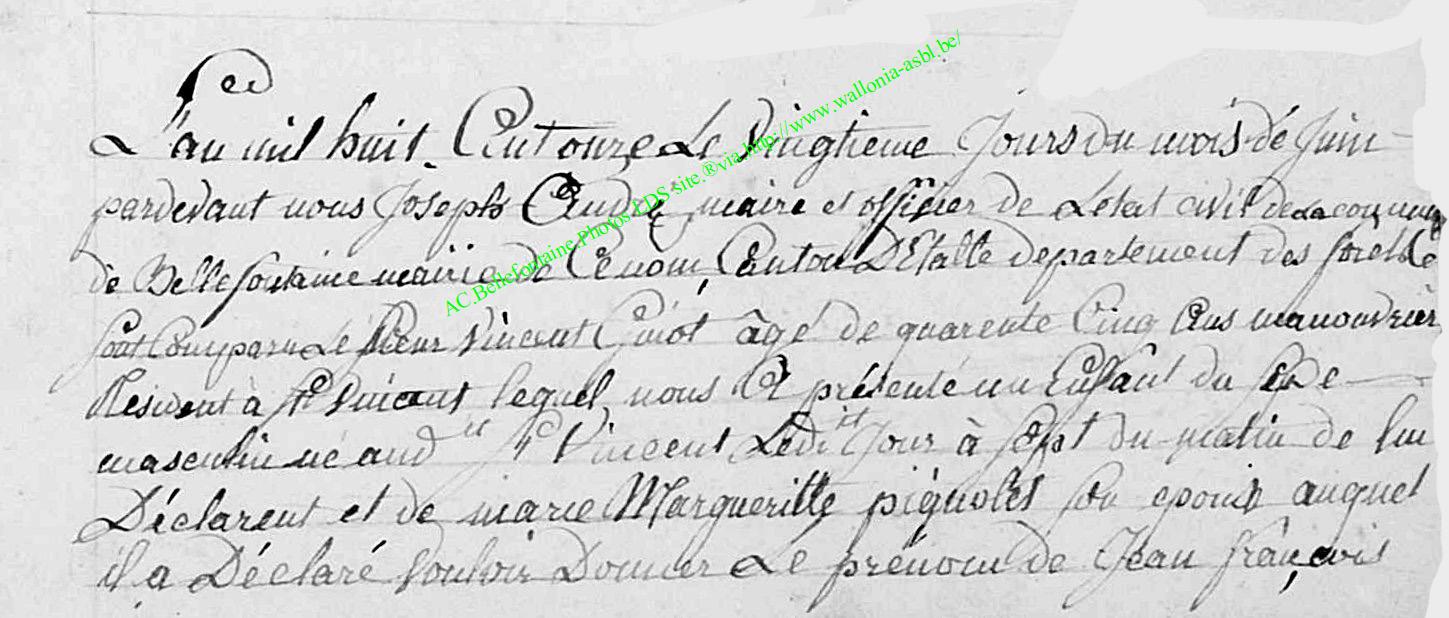 L'an mil huit Cent onze Le Vingtieme Jours du mois de Juin
pardevant nous Joseph André maire et officier de Létat civil de La commune
de Bellefontaine mairie de Ce nom, Canton D'Etalle departement des forets Ce
sont Comparu Le sieur Vincent Guiot âgé de quarente Cinq Ans manouvrier
Résident à St Vincent lequel nous A présenté un Enfant du sexe
masculin né aud it St Vincent Ledit Jour à sept du matin de lui
Déclarent et de marie Margueritte pignolet son epouse auquel
il a Déclaré Vouloir Donner Le prénom de Jean françois
AC.Bellefontaine.Photos LDS-site.®via http://www.wallonia-asbl.be/